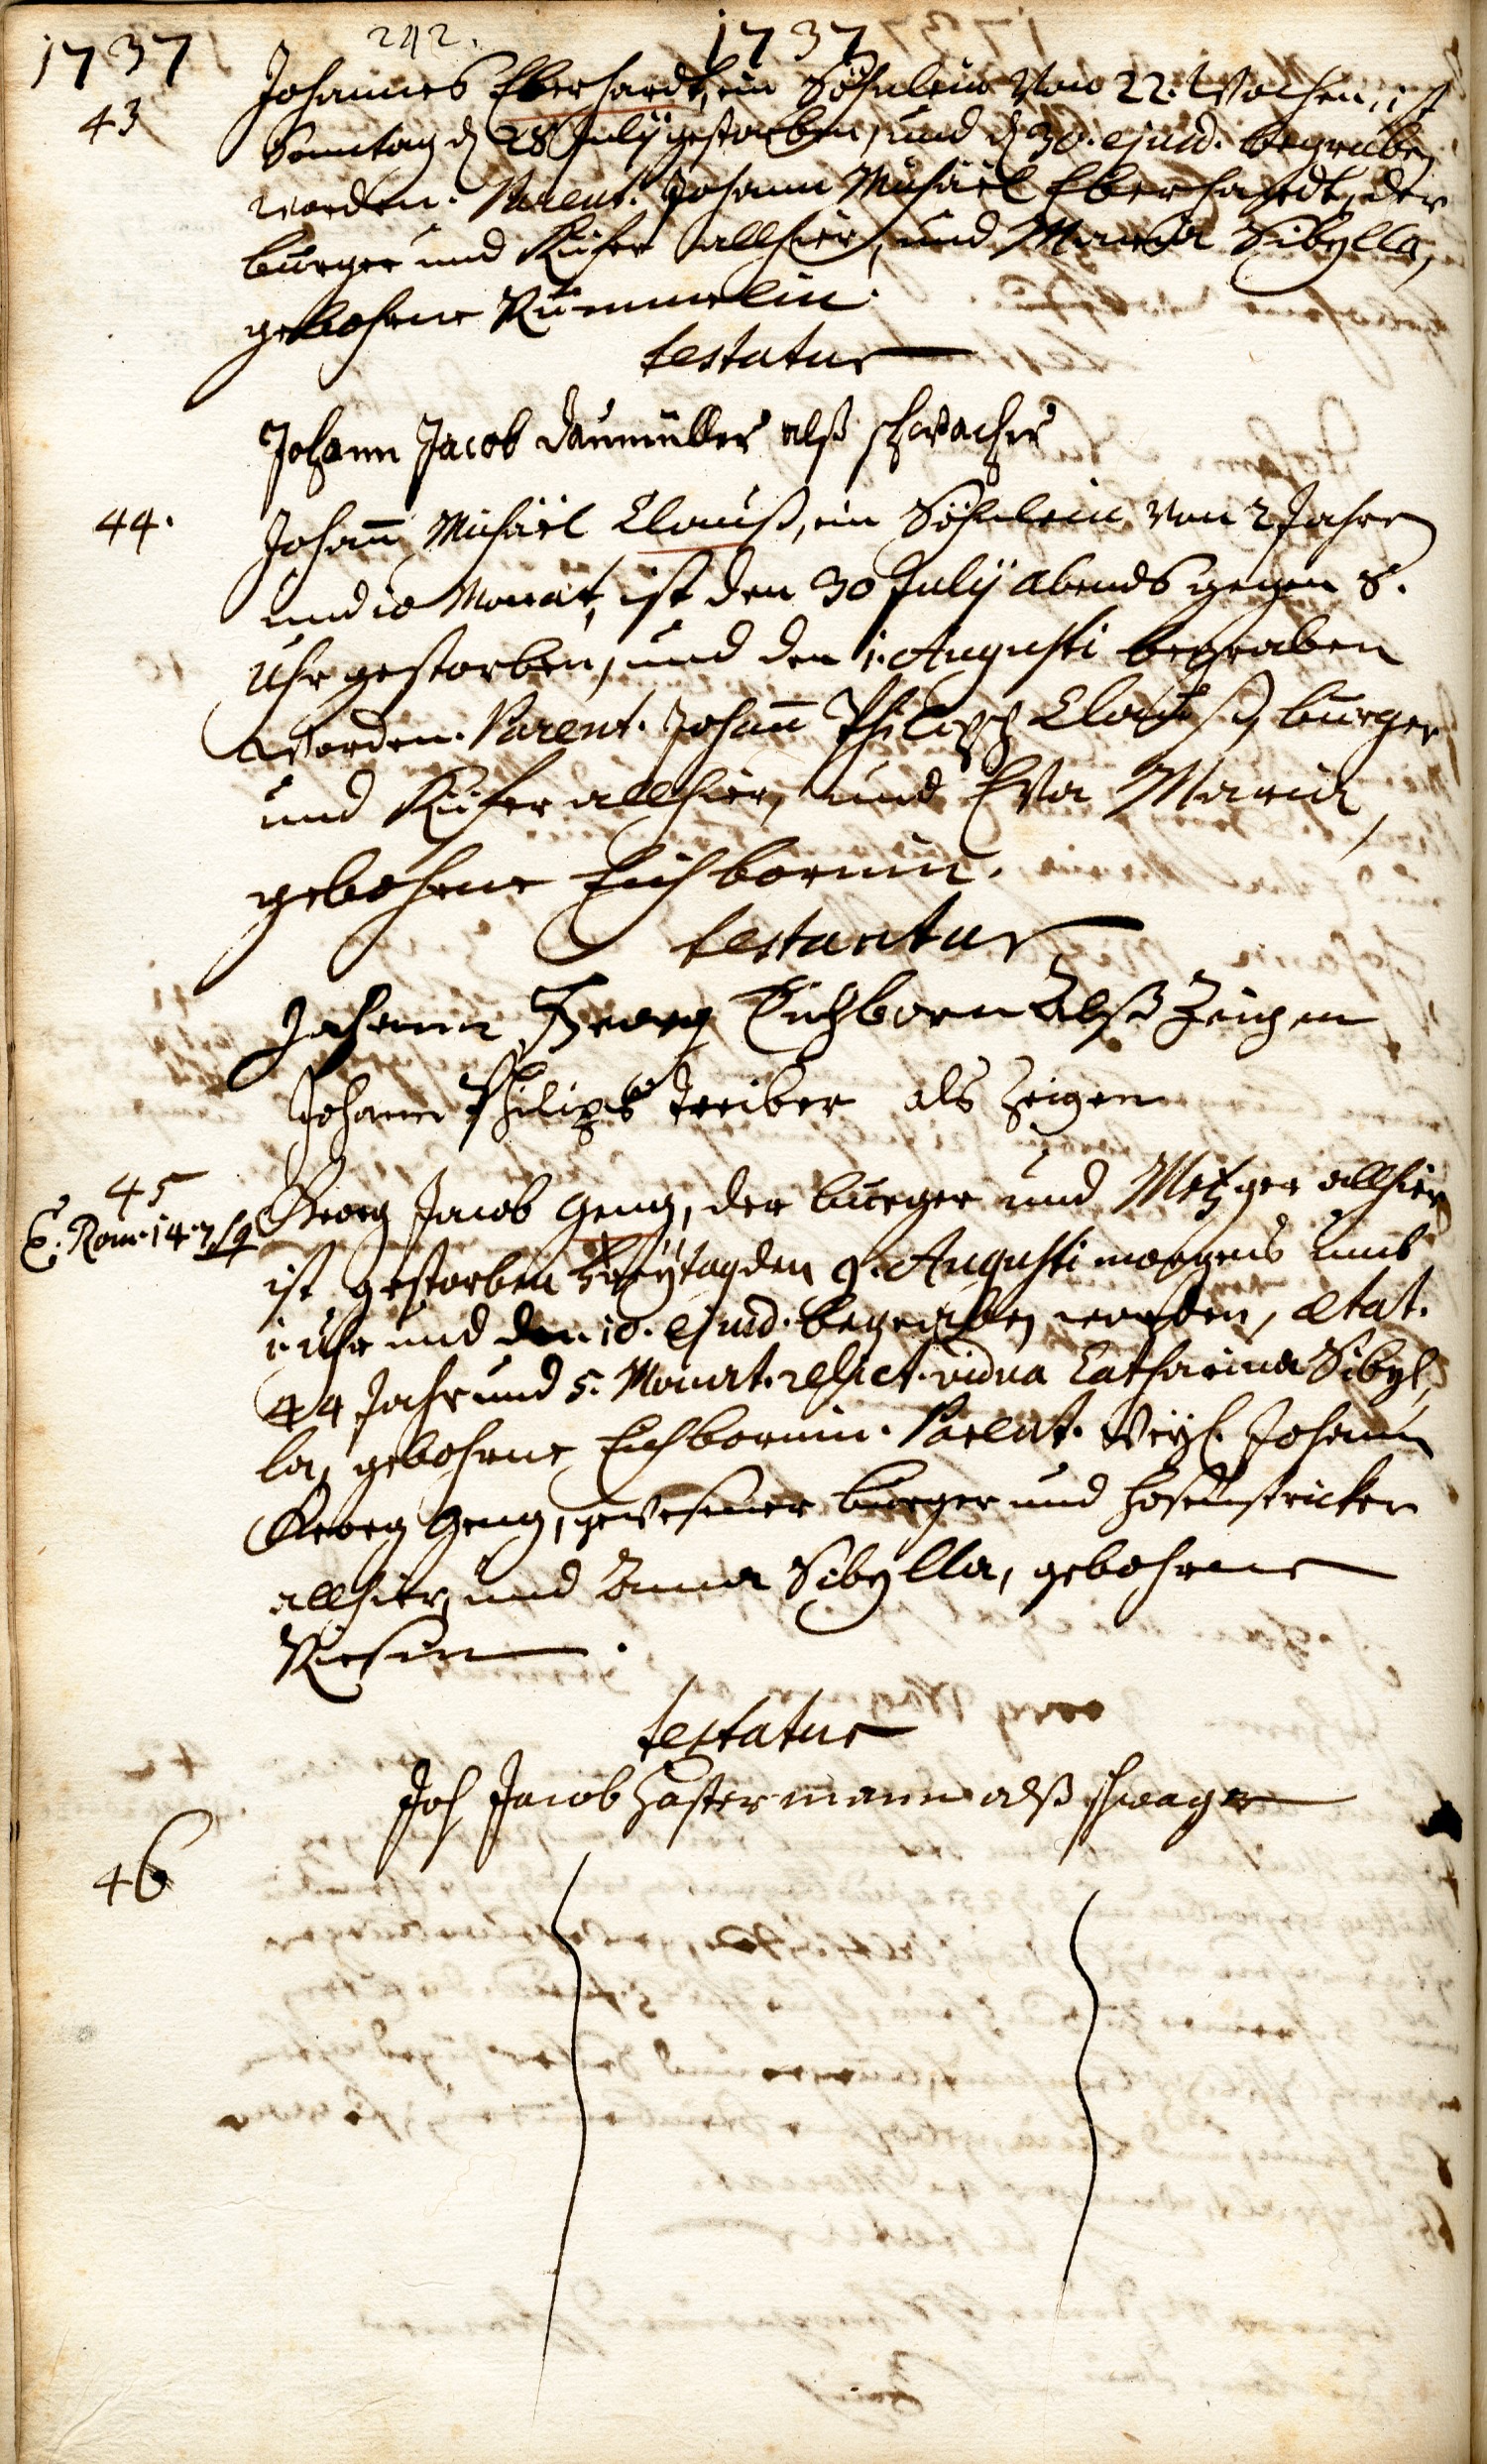 1737 242. 1737
43 Johannes Eberhardt, ein Söhnlein von 22. Wochen, ist
Sonntag d. 28 Julÿ gestorben, und d. 30. ejusd. begraben
worden. Parent. Johann Michäel Eberhardt, der
burger und Küfer allhier, und Maria Sibylla,
gebohrne Kümmelin.
testatur
Johann Jacob Daumüller alß schwacher
44. Johan̄ Michäel Clauß, ein Söhnlein von 2 Jahre
und 10 Monat, ist den 30 Julÿ abends gegen 8.
Uhr gestorben, und den 1. Augusti begraben
worden. Parent. Johan̄ Philipp Clauß, burger
und Küfer allhier, und Eva Maria,
gebohrne Eichbornin.
testantur
Johann Georg Eichborn alß Zeugen
Johann Philips Treiber als Zeigen
45 Georg Jacob Geng, der burger und Metzger allhier
C. Rom. 14. 7/9 ist gestorben Freÿtag den 9. Augusti morgens umb
1. Uhr und den 10. ejusd. begraben worden, ætat.
44 Jahr und 5. Monat. relict. vidua Catharina Sibyl,
la, gebohrne Eichbornin. Parent. Weyl. Johann
Georg Geng, gewesener burger und Hosenstricker
allhier, und Anna Sibylla, gebohrne
Riesin.
testatur
Joh Jacob Hastermann alß schwager
46